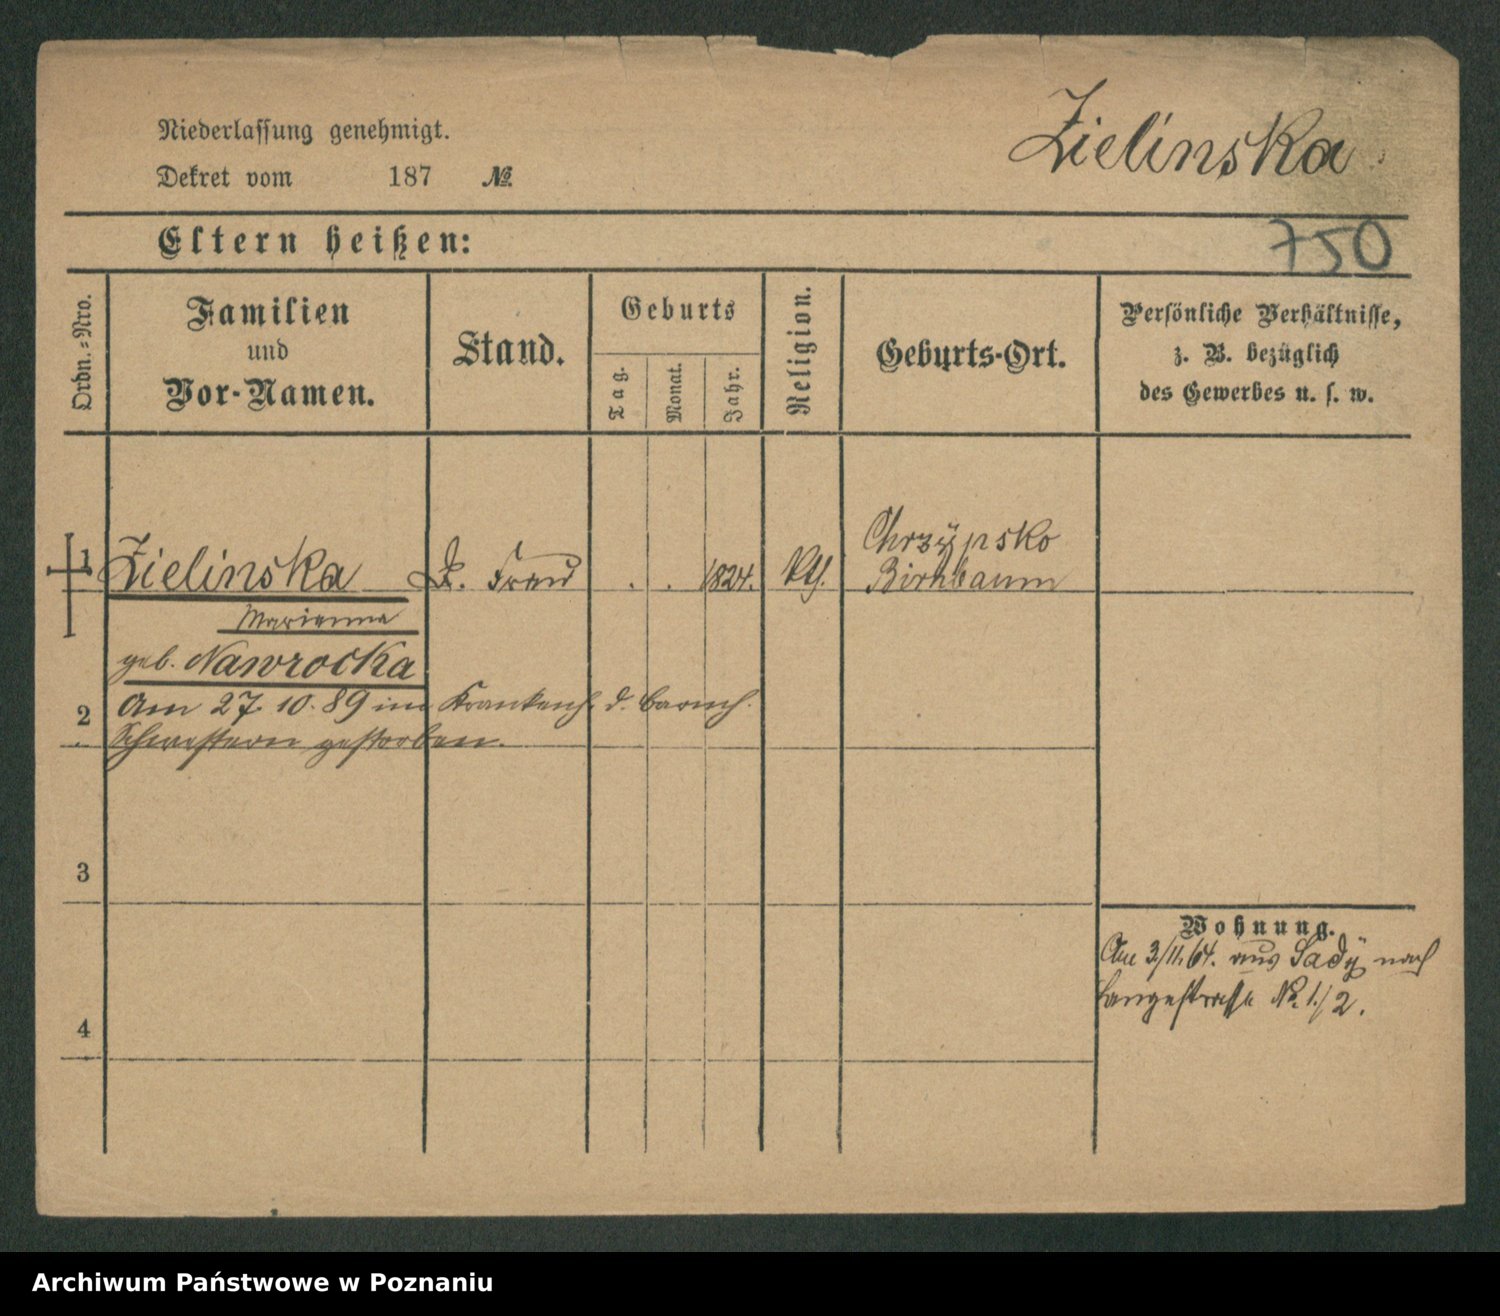 Niederlassung genehmigt.
Zielinska
Dekret vom 187 №
Eltern heißen:
750
Ordn.-Nro.
Familien
und
Vor-Namen.
Stand.
Geburts
Tag.
Monat.
Jahr.
Religion.
Geburts-Ort.
Persönliche Verhältnisse,
z. B. bezüglich
des Gewerbes u. s. w.
1 Zielinska Frau . . 1824. kth. Chrzÿpsko
Birnbaum
Marianna
geb. Nawrocka
2 Am 27. 10. 89 im Krankenh. d. barmh.
Schwestern gestorben.
3
4
Wohnung.
Am 3/11.64. aus Sadÿ nach
Langestrasse No. 1/2.
Archiwum Państwowe w Poznaniu